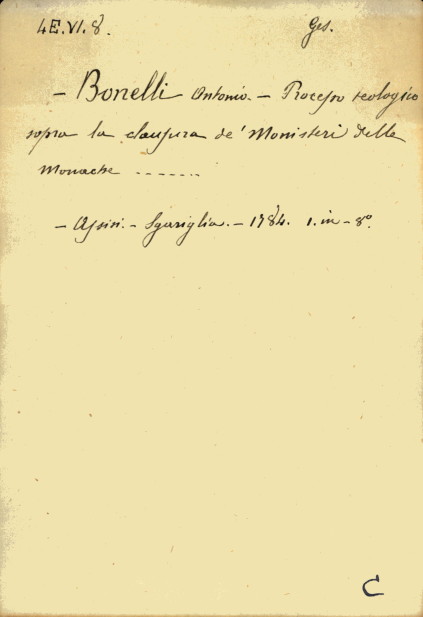 4E.VI.8. Ges.
- Bonelli Antonio. - Processo teologico
sopra la clausura de' Monisteri delle
Monache ......
- Assisi. - Sgariglia. - 1784. 1. in - 8º.
C